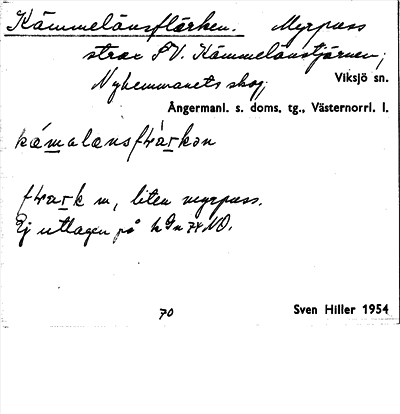 Kämmelånsflärken. Myrpass
strax SV. Kämmelånstjärnen,
Nyhemmanets skog,
Viksjö sn.
Ångermanl. s. doms, tg., Västernorrl. l.
m, liten myrpass.
Ej utlagen på
70
Sven Hiller 1954